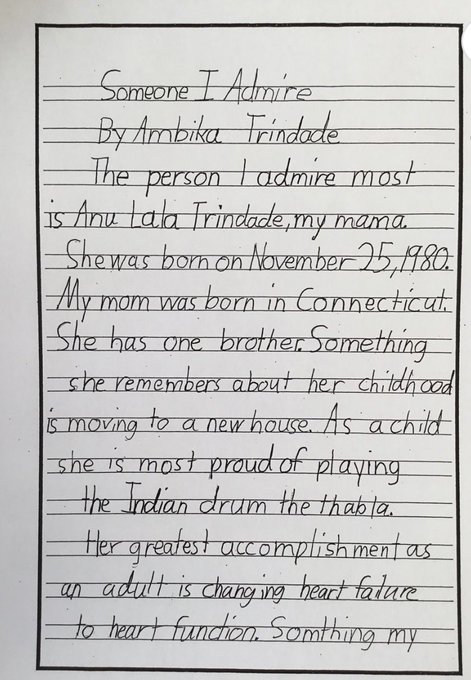 Someone I Admire
By Ambika Trindade
The person I admire most
is Anu Lala Trindade, my mama.
She was born on November 25, 1980.
My mom was born in Connecticut.
She has one brother. Something
she remembers about her childhood
is moving to a new house. As a child
she is most proud of playing
the Indian drum the thabla.
Her greatest accomplishment as
an adult is changing heart failure
to heart function. Somthing my